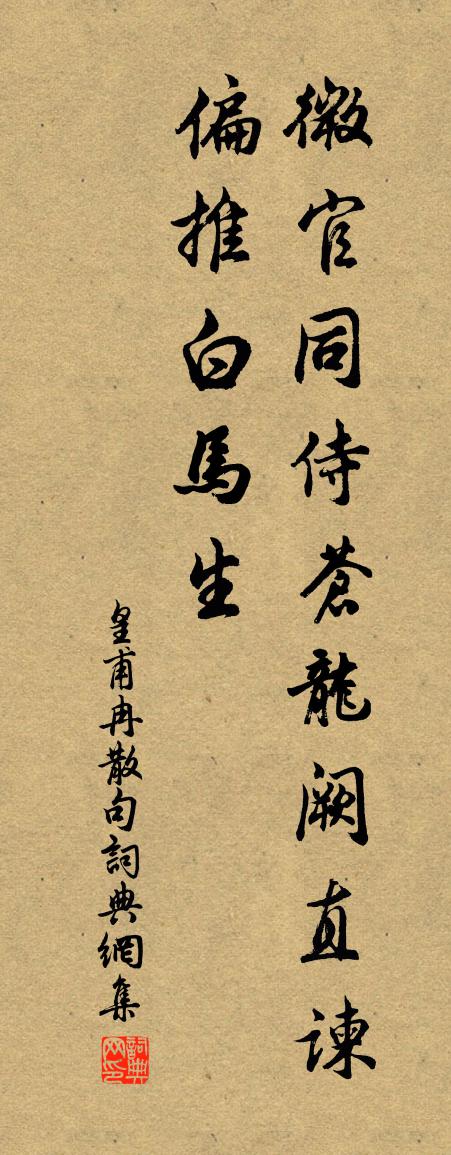 微官同侍蒼龍闕直諫
偏推白馬生
皇甫冉散句詞典網集
詞典网印